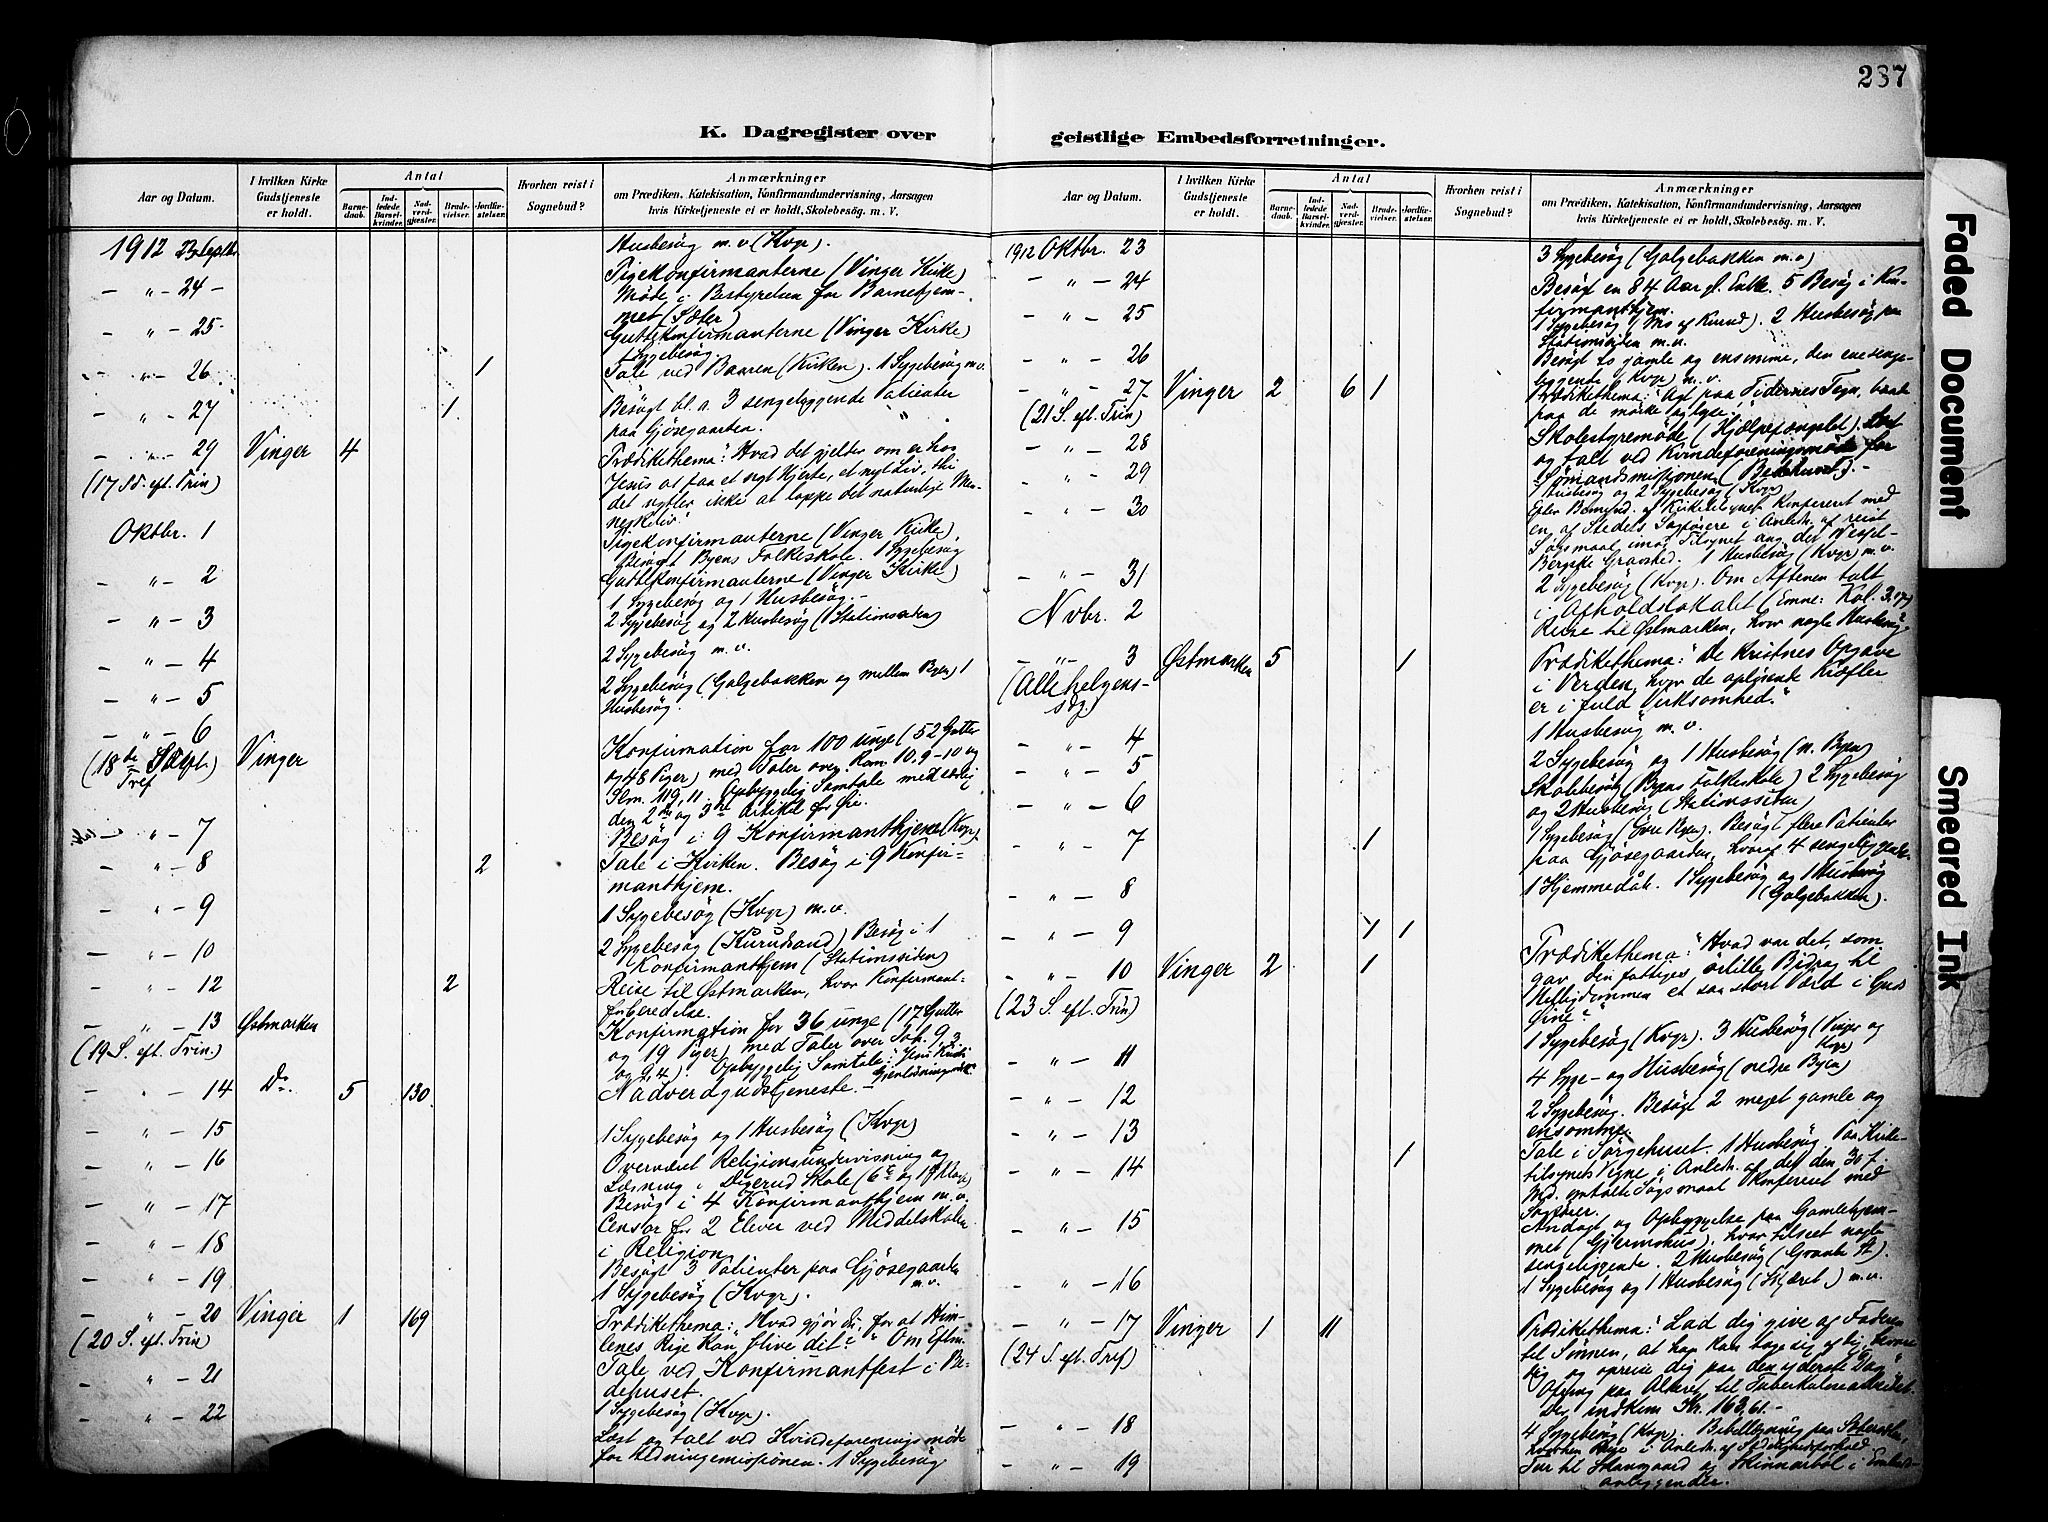 287
K. Dagregister over geistlige Embedsforretninger.
Aar og Datum.
I hvilken Kirke Gudstjeneste er holdt.
Antal
Barne-daab.
Ind-ledede Barsel-kvinder.
Nad-verd-gjester.
Brude-vielser.
Jordfæ-stelser.
Hvorhen reist i Sognebud?
Anmærkninger
om Prædiken, Katekisation, Konfirmandundervisning, Aarsagen
hvis Kirketjeneste ei er holdt, Skolebesøg. m. V.
1912 23 Septbr. Husbesøg m. v (Kvgr).
— " — 24 — Pigekonfirmanterne (Vinger Kirke)
Møde i Bestyrelsen for Barnehjem-
met (Sæter)
— " — 25 — Guttekonfirmanterne (Vinger Kirke)
1 Sygebesøg.
— " — 26 1 Tale ved Baaren (Kirken). 1 Sygebesøg m.v.
— " — 27 1 Besøgt bl. a. 3 sengeliggende Patienter
paa Gjøsegaarden.
— " — 29 Vinger 4 Prædikethema: "Hvad det gjelder om er hos
(17 S. eft. Trin) Jesus at faa et nyt Hjerte, et nyt Liv, thi
det nytter ikke at lappe det naturlige Men-
neskeliv."
Oktbr. 1 Pigekonfirmanterne (Vinger Kirke)
Besøgt Byens Folkeskole. 1 Sygebesøg
— " — 2 Guttekonfirmanterne (Vinger Kirke)
1 Sygebesøg og 1 Husbesøg. —
— " — 3 2 Sygebesøg og 2 Husbesøg (Stationssiden)
— " — 4 2 Sygebesøg m. v.
— " — 5 2 Sygebesøg (Galgebakken og mellem Byen) 1
Husbesøg.
— " — 6 Vinger Konfirmation for 100 unge (52 Gutter
og 48 Piger) med Taler over Rom 10, 9-10 og
Slm. 119, 11. Opbyggelig Samtale
den 2den og 3die Artikel
— " — 7 Besøg i 9 Konfirmanthjem (Kvgr).
— " — 8 2 Tale i Kirken. Besøg i 9 Konfir-
manthjem.
— " — 9 1 Sygebesøg (Kvgr) m. v.
— " — 10 2 Sygebesøg (Kurudsand) Besøg i 1
Konfirmanthjem (Stationssiden)
— " — 12 2 Reise til Østmarken, hvor Konfirmant-
forberedelse.
— " — 13 Østmarken Konfirmation for 36 unge (17 Gutter
(19 S. eft. Trin.) og 19 Piger) med Taler over Joh. 9, 2
og 9,4) Opbyggelig Samtale: "Jesu Kristi
— " — 14 Do. 5 130 Nadverdgudstjeneste. —
— " — 15 1 Sygebesøg og 1 Husbesøg (Kvgr)
— " — 16 Overværet Religionsundervisning og
Læsning i Digerud Skole
— " — 17 Besøg i 4 Konfirmanthjem m. v.
— " — 18 Censor for 2 Elever ved Middelskolen
i Religion
— " — 19 Besøgt 3 Patienter paa Gjøsegaarden
1 Sygebesøg (Kvgr). m. v.
— " — 20 Vinger 1 169 Prædikethema: "Hvad gjør du, for at Him-
(20 S. eft. Trin) lenes Rige kan blive dit?" Om Eftm.
Tale ved Konfirmantfest i Be-
dehuset.
— " — 21 1 Sygebesøg (Kvgr).
— " — 22 Læst og talt ved Kvindeforeningsmøde
for Hedningemissionen. 1 Sygebesøg
Aar og Datum.
I hvilken Kirke Gudstjeneste er holdt.
Antal
Barne-daab.
Ind-ledede Barsel-kvinder.
Nad-verd-gjester.
Brude-vielser.
Jordfæ-stelser.
Hvorhen reist i Sognebud?
Anmærkninger
om Prædiken, Katekisation, Konfirmandundervisning, Aarsagen
hvis Kirketjeneste ei er holdt, Skolebesøg, m. V.
1912 Oktbr. 23 3 Sygebesøg (Galgebakken m.v)
— " — 24 Besøgt en 84 Aar gl. Enke. 5 Besøg i Kon-
firmanthjem.
— " — 25 1 Sygebesøg 2 Husbesøg paa
Stationssiden m.v.
— " — 26 Besøgt to gamle og ensomme, den ene senge-
liggende (Kvgr) m. v.
— " — 27 Vinger 2 6 1 Prædikethema: "Agt paa Tidernes Tegn, baade
(21 S. eft. Trin) paa de mørke og lyse.
— " — 28 Skolestyremøde (Hjælpefængslet). Læst
og talt ved Kvindeforeningsmøde for
— " — 29 Sømandsmissionen (Bedehuset). —
1 Husbesøg og 2 Sygebesøg (Kvgr)
— " — 30 Efter Bemynd. af Kirketilsynet konfereret med
en af Stedets Sagførere i Anledn. af reist
Søgsmaal imod Tilsynet ang. det
Bergske Gravsted. 1 Husbesøg (Kvgr) m. v.
— " — 31 2 Sygebesøg (Kvgr). Om Aftenen talt
i Afholdslokalet (Emne: Kol. 3.17)
Novbr. 2 Reise til Østmarken, hvor nogle Husbesøg
— " — 3 Østmarken 5 1 Prædikethema: "De Kristnes Opgave
(Allehelgens- i Verden, hvor de opløsende Kræfter
dg.) er i fuld Virksomhed."
— " — 4 1 Husbesøg m. v.
— " — 5 2 Sygebesøg og 1 Husbesøg (n. Byen)
— " — 6 Skolebesøg (Byens Folkeskole) 2 Sygebesøg
og 2 Husbesøg (Stationssiden)
— " — 7 1 1 Sygebesøg (øvre Byen). Besøgt flere Patienter
paa Gjøsegaarden, hvoraf 4 sengeliggende.
— " — 8 1 Hjemmedåb. 1 Sygebesøg og 1 Husbesøg
(Galgebakken).
— " — 9 1 1
— " — 10 Vinger 2 1 Prædikethema: "Hvad var det, som
(23 S. eft. Trin) gav den fattiges ørlille Bidrag til
Helligdommen et saa stort Værd i Guds
Øine?"
— " — 11 1 Sygebesøg (Kvgr). 3 Husbesøg (Vinger og
Kvgr)
— " — 12 4 Syge- og Husbesøg (nedre Byen)
— " — 13 2 Sygebesøg. Besøgt 2 meget gamle og
ensomme.
— " — 14 1 Tale i Sørgehuset. 1 Husbesøg. Paa Kirke-
tilsynets Vegne i Anledn. af det den 30 f.
Md. omtalte Søgsmaal konfereret med
Sagfører.
— " — 15 Andagt og Opbyggelse paa Gamlehjem-
met (Gjermshus), hvor tilseet nogle
sengeliggende. 2 Husbesøg
— " — 16 1 Sygebesøg og 1 Husbesøg (Skjæret) m. v.
— " — 17 Vinger 1 11 Prædikethema: "Lad dig give af Faderen
(24 S. eft. Tref) til Sønnen, at han kan tage sig af dig, bevare
dig og opreise dig paa den yderste Dag"
Ofring paa Alteret til Tuberkulosearbeidet.
Der indkom Kr. 163,61. —
— " — 18 4 Sygebesøg (Kvgr). Bibellæsning paa
— " — 19 Tur til Skansgaard og Skinnarbøl i Embeds-
anliggender.
Faded Document
Smeared Ink